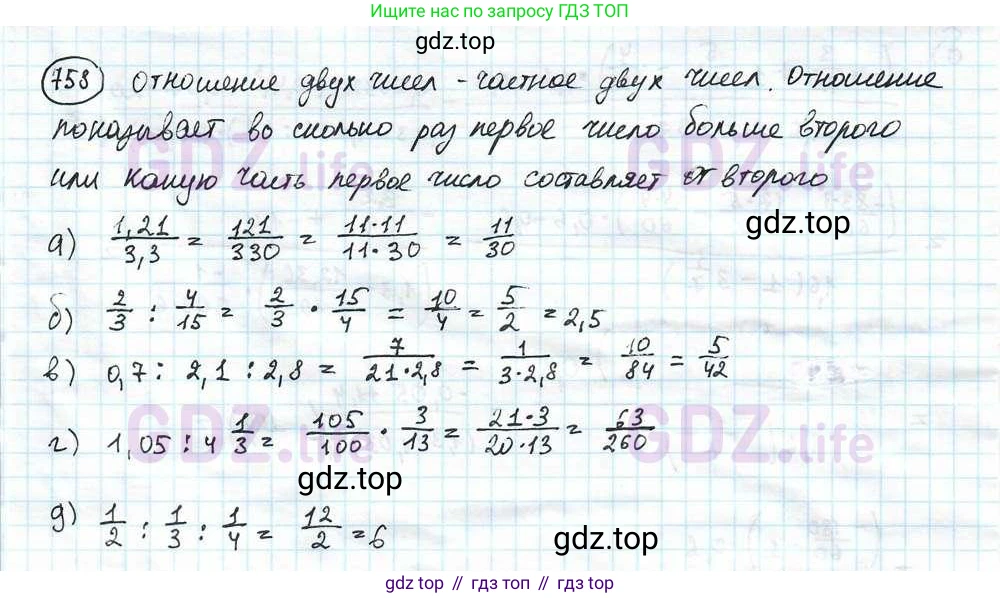 Ищите нас по запросу ГДЗ ТОП
gdz.top
758 Отношение двух чисел - частное двух чисел. Отношение
показывает во сколько раз первое число больше второго
или какую часть первое число составляет от второго
GDZ.life GDZ.life
gdz.top
а) 1,21/3,3 = 121/330 = 11·11/11·30 = 11/30
б) 2/3 : 4/15 = 2/3 · 15/4 = 10/4 = 5/2 = 2,5
в) 0,7 : 2,1 : 2,8 = 7/21·2,8 = 1/3·2,8 = 10/84 = 5/42
GDZ.life GDZ.life
г) 1,05 : 4 1/3 = 105/100 · 3/13 = 21·3/20·13 = 63/260
gdz.top
д) 1/2 : 1/3 : 1/4 = 12/2 = 6
gdz.top
gdz.top // гдз топ // gdz.top // гдз топ // gdz.top